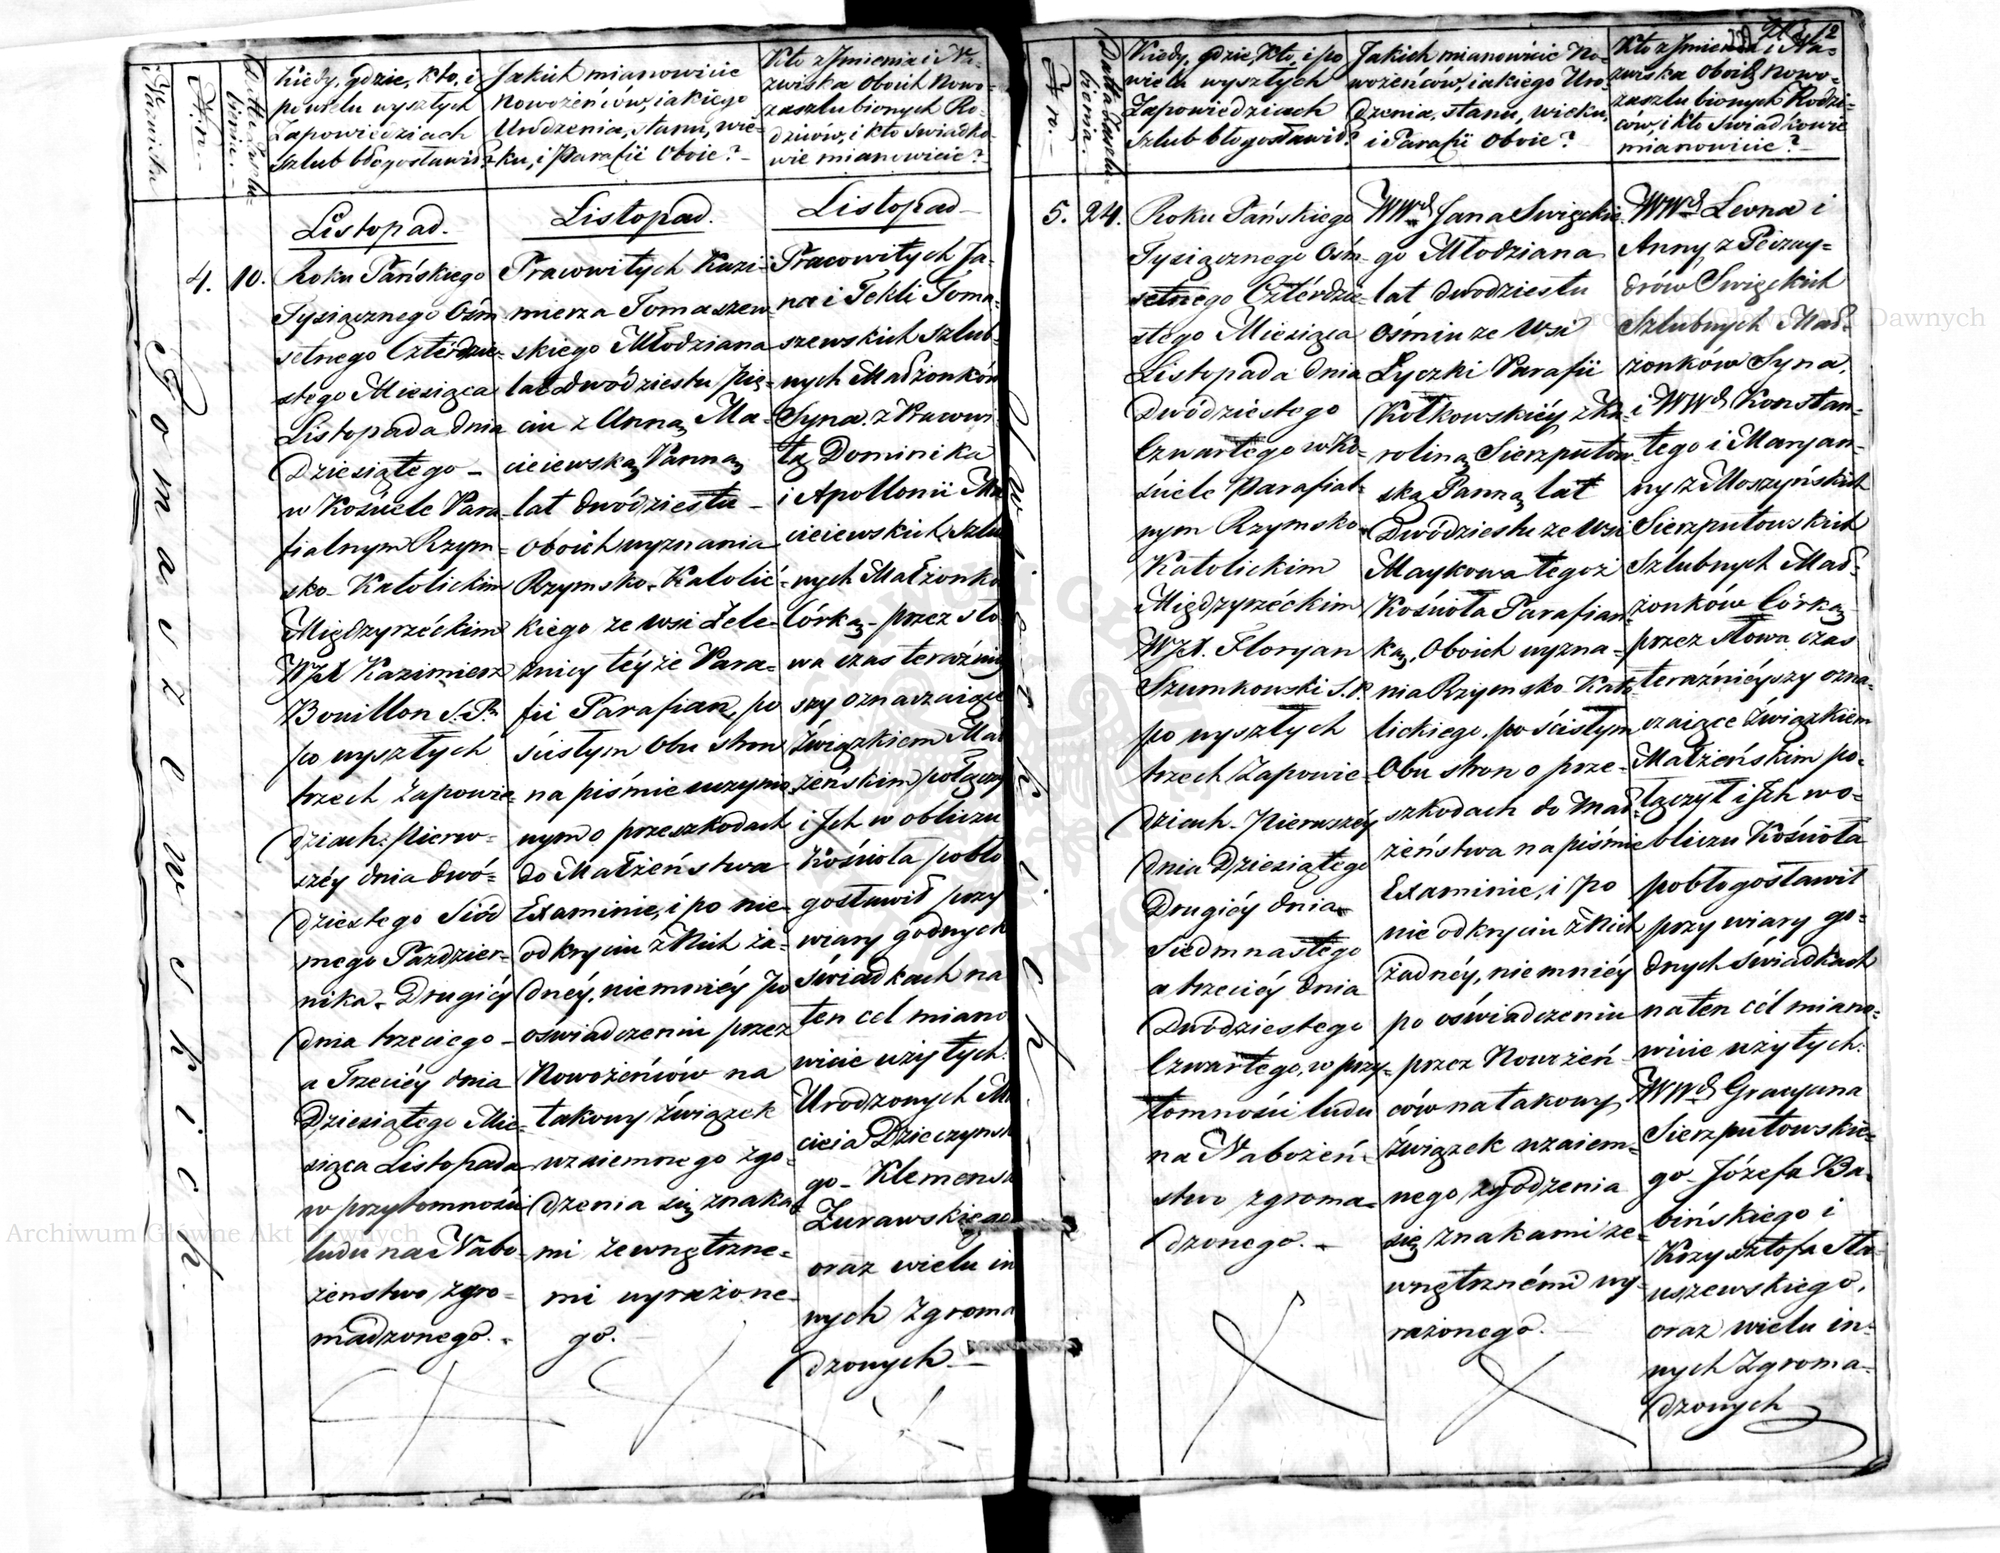 Nr.
Kiedy, gdzie, kto, i
powielu wyszłych
Zapowiedziach
szlub błogosławił?
Jakich mianowicie
Nowożeńców, iakiego
Urodzenia, stanu, wie-
ku, i Parafii Oboie? -
Kto z Imienia i Na-
zwiska Oboich Nowo-
zaszlubionych Ro-
dziców, i kto świadko-
wie mianowicie? -
4.
10.
Tomaszewskich
Listopad. -
Roku Pańskiego
Tysiącznego Ośm
setnego Czterdzie-
stego Miesiąca
Listopada dnia
Dziesiątego -
w Kościele Para
fialnym Rzym-
sko-Katolickim
Międzyrzéckim
WJX Kazimierz
Bouillon S. P.
po wyszłych
trzech Zapowie-
dziach: Pierw-
széy dnia dwó-
dziestego Siód
mego Paździer-
nika - Drugiéy
dnia trzeciego -
a Trzeciéy dnia
Dziesiątego Mie-
siąca Listopada
w przytomności
ludu na Nabo-
żenstwo zgro-
madzonego. -
Listopad.
Pracowitych Kazi-
mierza Tomaszew
skiego Młodziana
lat dwódziestu pię-
ciu z Anną Ma-
cieiewską Panną
lat dwódziestu -
oboich wyznania
Rzymsko-Katolic-
kiego ze wsi Żele-
źnicy téyże Para-
fii Parafian, po
ścisłym Obu stron
na piśmie uczynio
nym o przeszkodach
do Małżeństwa
Examinie, i po nie
odkryciu z Nich ża-
dnéy, niemniéy po
oświadczeniu przez
Nowożeńców na
takowy związek
wzaiemnego zgo-
dzenia się znaka
mi zewnętrzne-
mi wyrażone-
go. -
Listopad -
Pracowitych Ja-
na i Tekli Toma-
szewskich szlub-
nych Małżonków
Syna. z Pracowi
tą Dominika
i Apollonii Ma
cieiewskich Szlu
nych Małżonkó
Córką - przez sło
wa czas teraźniéy
szy oznaczaiące
Związkiem Mał
żeńskim połączy
i Ich w obliczu
Kościoła pobło
gosławił przy
wiary godnych
świadkach na
ten cel miano
wicie użytych:
Urodzonych Ma
cieia Dzieczynsk
go - Klemensa
Żurawskiego
oraz wielu in
nych Zgroma
dzonych -
Nr.
Kiedy, gdzie, kto, i po
wielu wyszłych
Zapowiedziach
szlub błogosławił?
Jakich mianowicie No-
wożeńców, iakiego Uro-
dzenia, stanu, wieku,
i Parafii Oboie?
Kto z Imienia i Na-
zwiska Oboich Nowo-
zaszlubionych Rodzi-
ców, i kto świadkowie
mianowicie? -
5.
24.
Roku Pańskiego
Tysiącznego Ośm-
setnego Cztérdzie-
stego Miesiąca
Listopada dnia
Dwódziestego
Czwartego w Ko-
ściele Parafial-
nym Rzymsko
Katolickim
Międzyrzéckim
WJX. Floryan
Szumkowski S.P.
po wyszłych
trzech Zapowie-
dziach - Pierwszéy
dnia Dziesiątego
Drugiéy dnia
Siedmnastego
a trzeciéy dnia
Dwódziestego
Czwartego, w przy-
tomności ludu
na Nabożeń-
stwo zgroma-
dzonego. -
WW Jana Swięckie
go Młodziana
lat dwodziestu
Ośmiu ze Wsi
Łyczki Parafii
Kołkowskiéy z Ka
roliną Sierzputow
ską Panną lat
Dwódziestu ze wsi
Maykowa tegoż
Kościoła Parafian
ką, Oboich wyzna-
nia Rzymsko Kato
lickiego, po ścisłym
Obu stron o prze-
szkodach do Mał-
żeństwa na piśmie
Examinie, i po
nie odkryciu z Nich
żadnéy, niemniéy
po oświadczeniu
przez Nowożeń
ców na takowy
Związek wzaiem-
nego zgodzenia
się znakami ze-
wnętrznémi wy-
rażonego. -
WW Leona i
Anny z Peizny-
drów Swięckich
Szlubnych Mał-
żonków Syna,
i WW Konstan-
tego i Maryan-
ny z Moszyńskich
Sierzputowskich
Szlubnych Mał-
żonków Córką
przez słowa czas
teraźniéyszy ozna-
czaiące Związkiem
Małżeńskim po-
łączył i Ich wo-
bliczu Kościoła
pobłogosławił
przy wiary go-
dnych świadkach
na ten cél miano-
wicie użytych:
WW Gracyana
Sierzputowskie-
go - Józefa Ba-
bińskiego i
Krzysztofa Sta-
uszewskiego,
oraz wielu in-
nych Zgroma-
dzonych
Archiwum Główne Akt Dawnych
Archiwum Główne Akt Dawnych